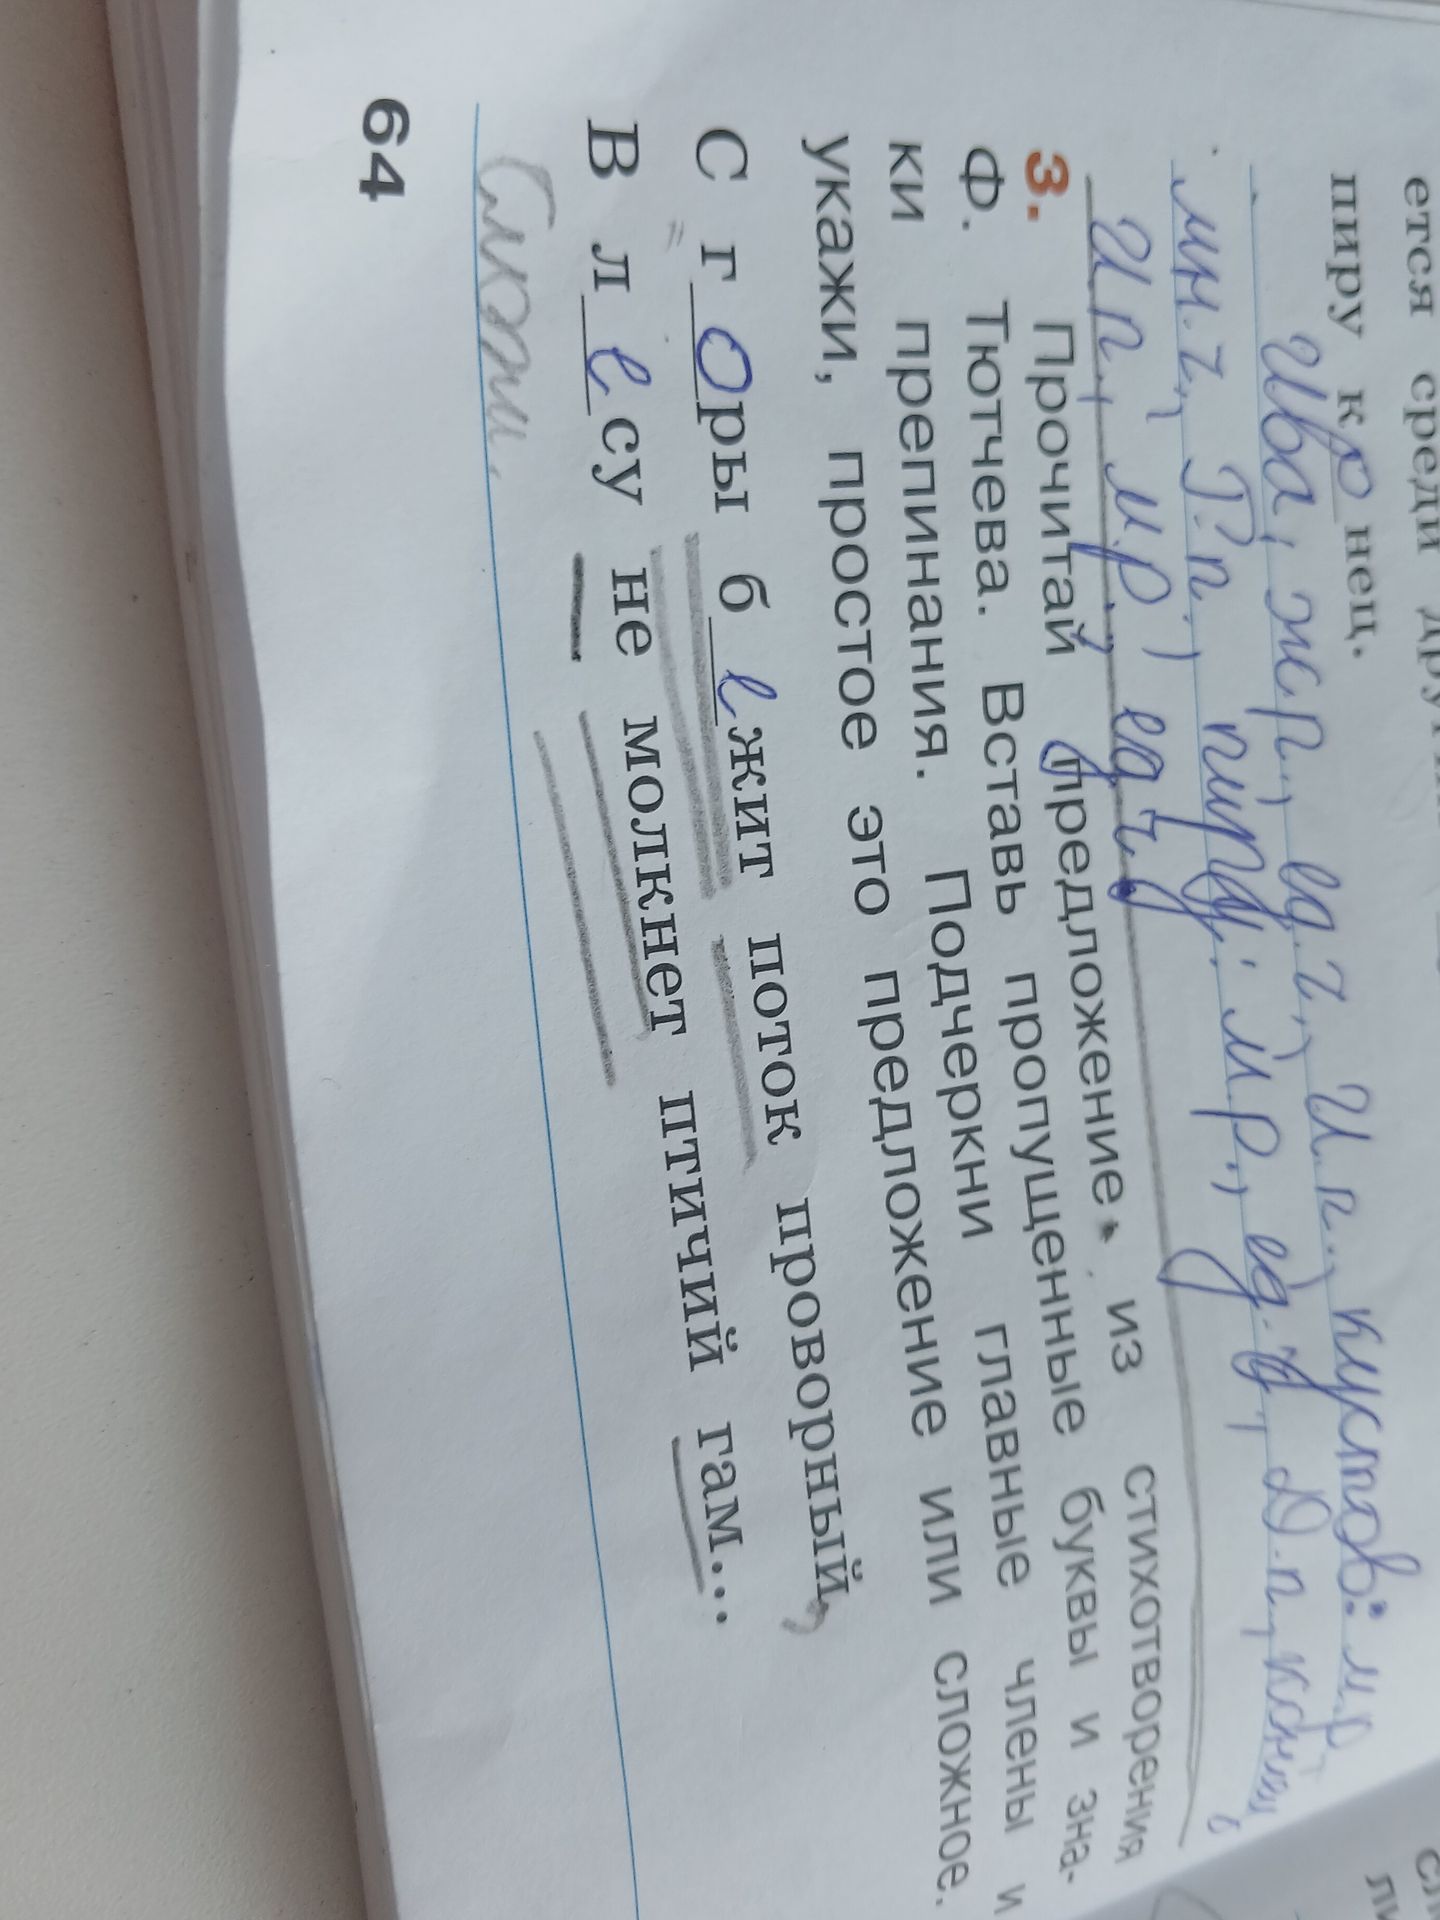 ется среди
пируконец.
Ива, ж.р., ед.ч., И.п., кустов: м.р.
мн.ч., Р.п., пиру: м.р., ед.ч., Д.п., конец,
И.п., м.р., ед.ч.
3. Прочитай предложение из стихотворения
Ф. Тютчева. Вставь пропущенные буквы и зна-
ки препинания. Подчеркни главные члены и
укажи, простое это предложение или сложное.
С горы бежит поток проворный,
В лесу не молкнет птичий гам...
Слож.
64